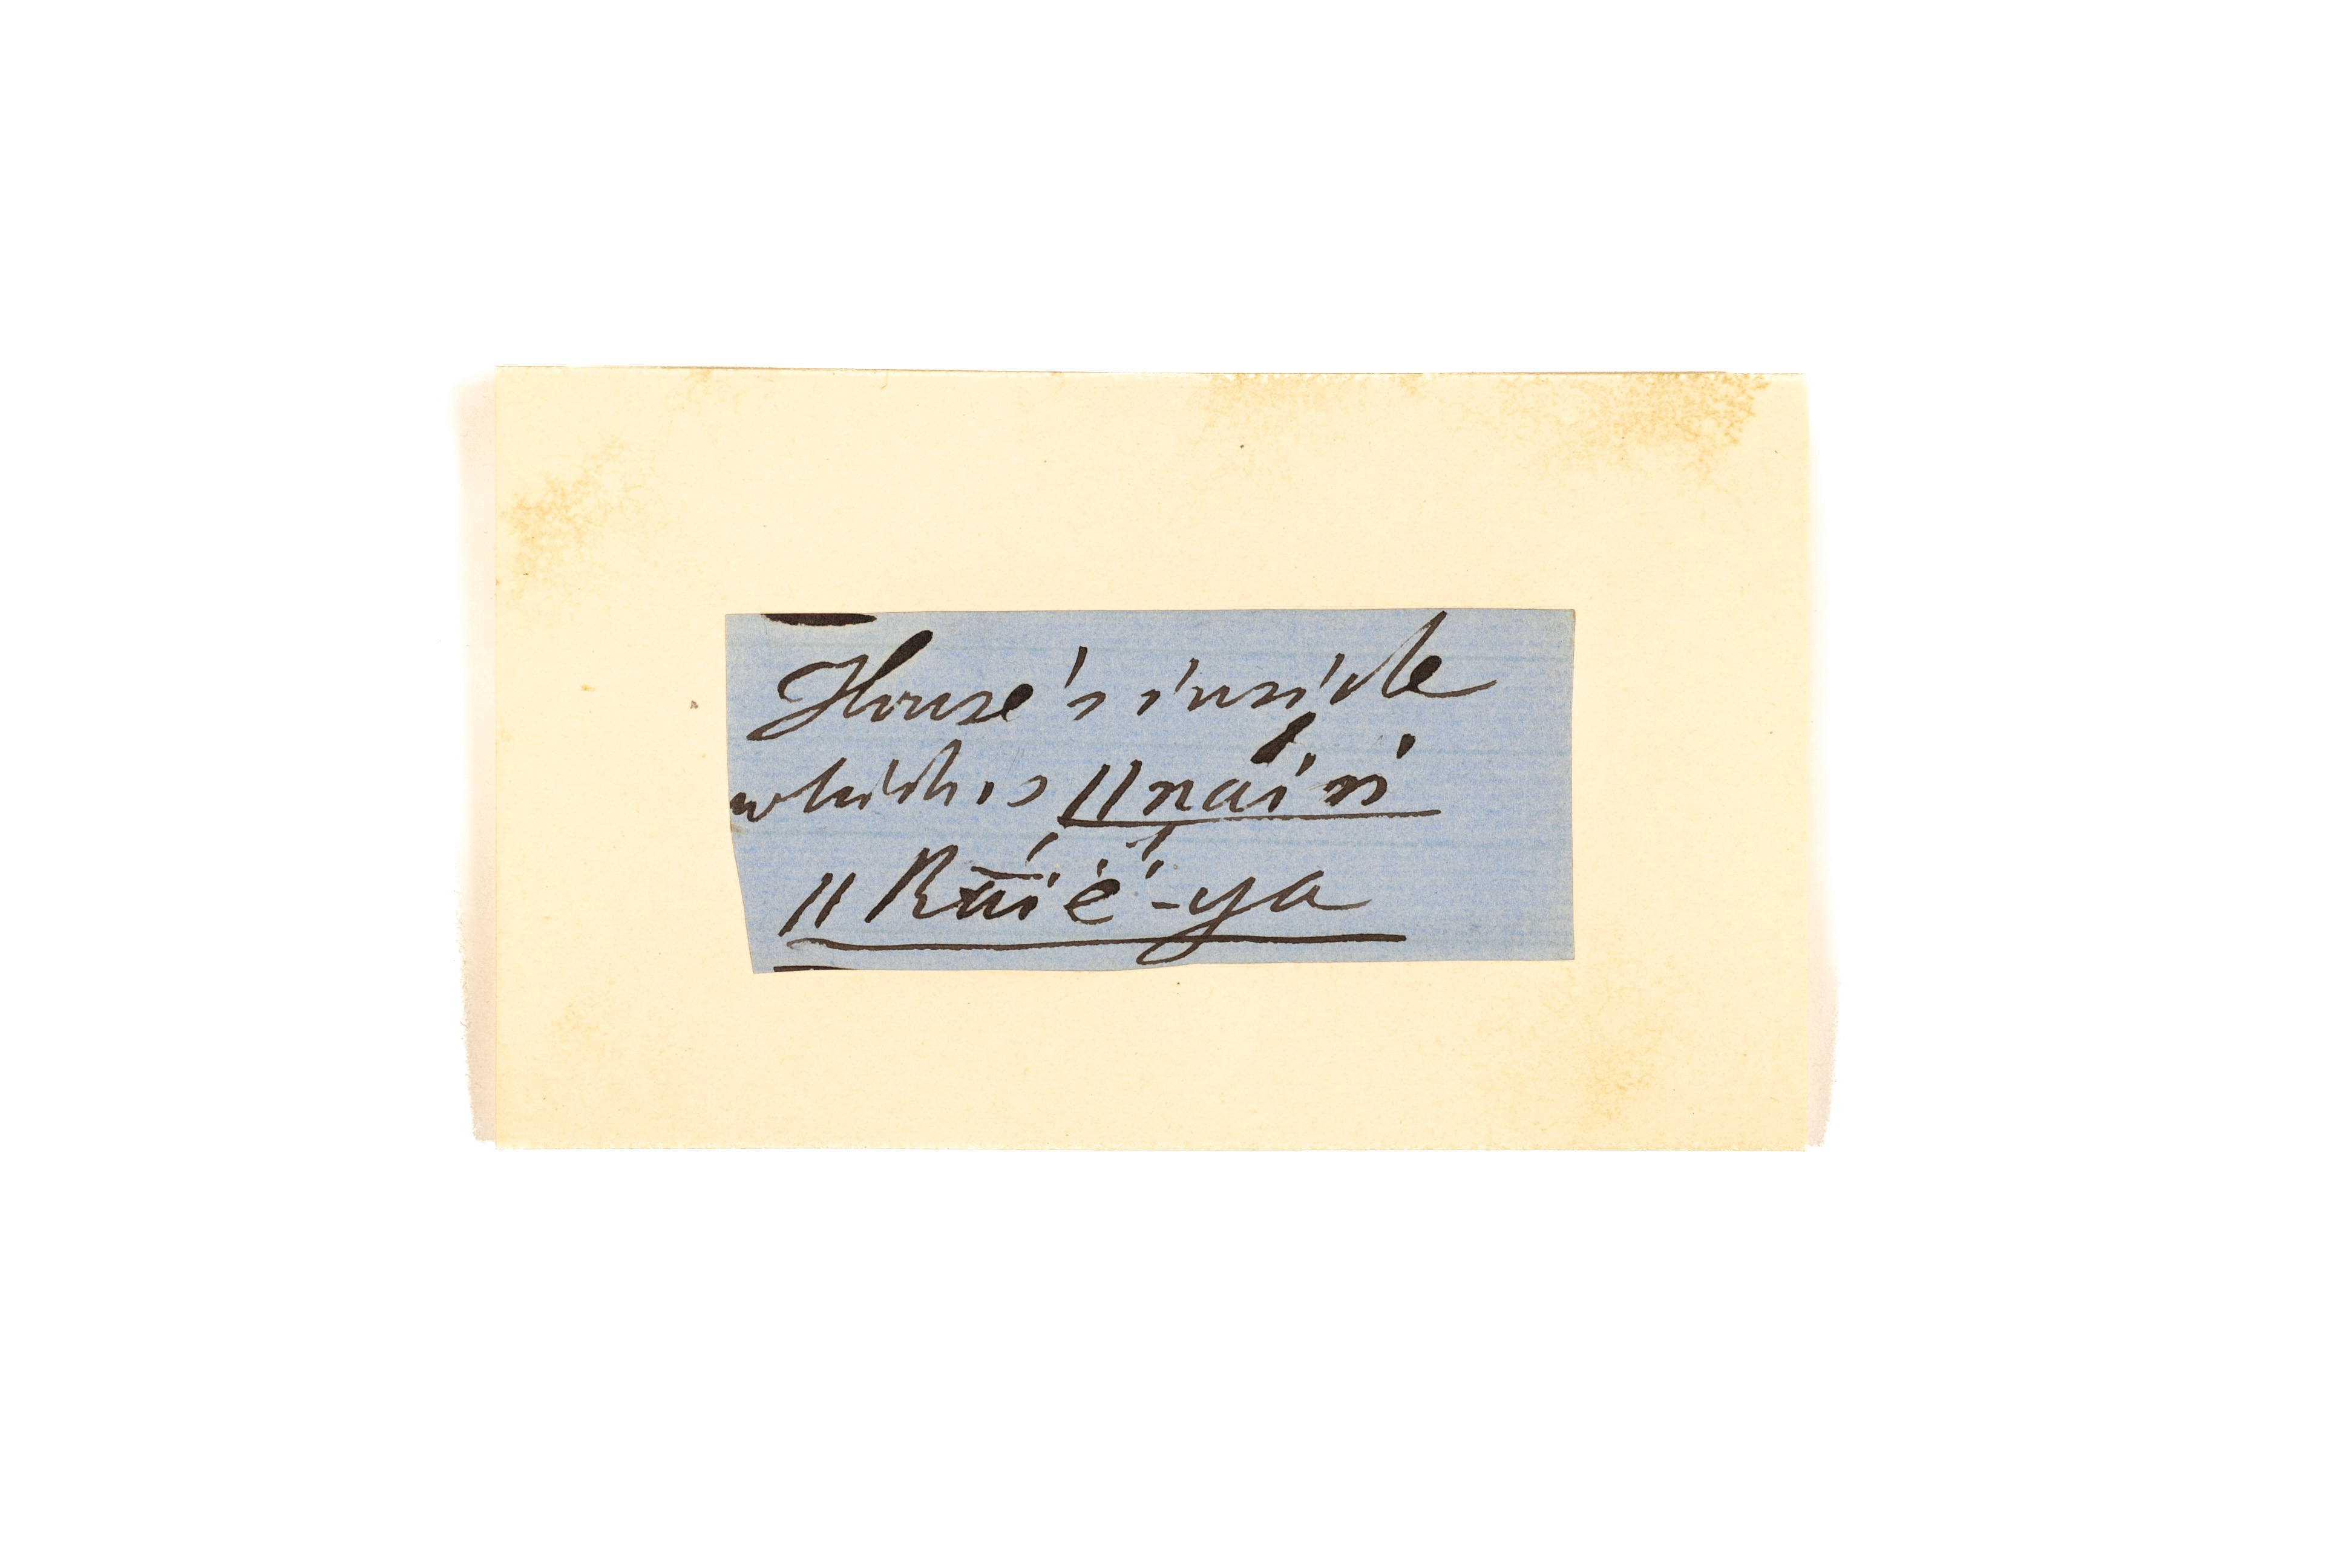 House's inside
which is ||nai ss
||Kúïé-ya